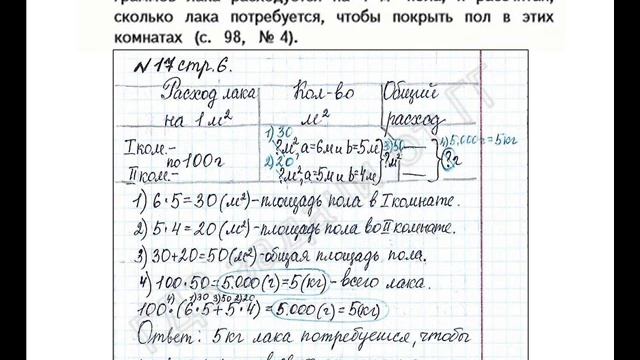 граммов лака расходуется на 1 м² пола, и рассчитай,
сколько лака потребуется, чтобы покрыть пол в этих
комнатах (с. 98, № 4).
№ 17 стр. 6.
Расход лака на 1 м²
Кол-во м²
Общий расход
I ком.-
по 100г
II ком.-
1) 30
?м², a=6м и b=5м
2) 20
?м², a=5м и b=4м
3) 50
?м²
4) 5.000г=5кг
?г
1) 6·5=30 (м²)-площадь пола в I комнате.
2) 5·4=20 (м²)-площадь пола во II комнате.
3) 30+20=50 (м²)-общая площадь пола.
4) 100·50=5.000(г)=5(кг)-всего лака.
4) 1)30 3)50 2)20
100·(6·5+5·4)=5.000(г)=5(кг)
Ответ: 5кг лака потребуется, чтобы